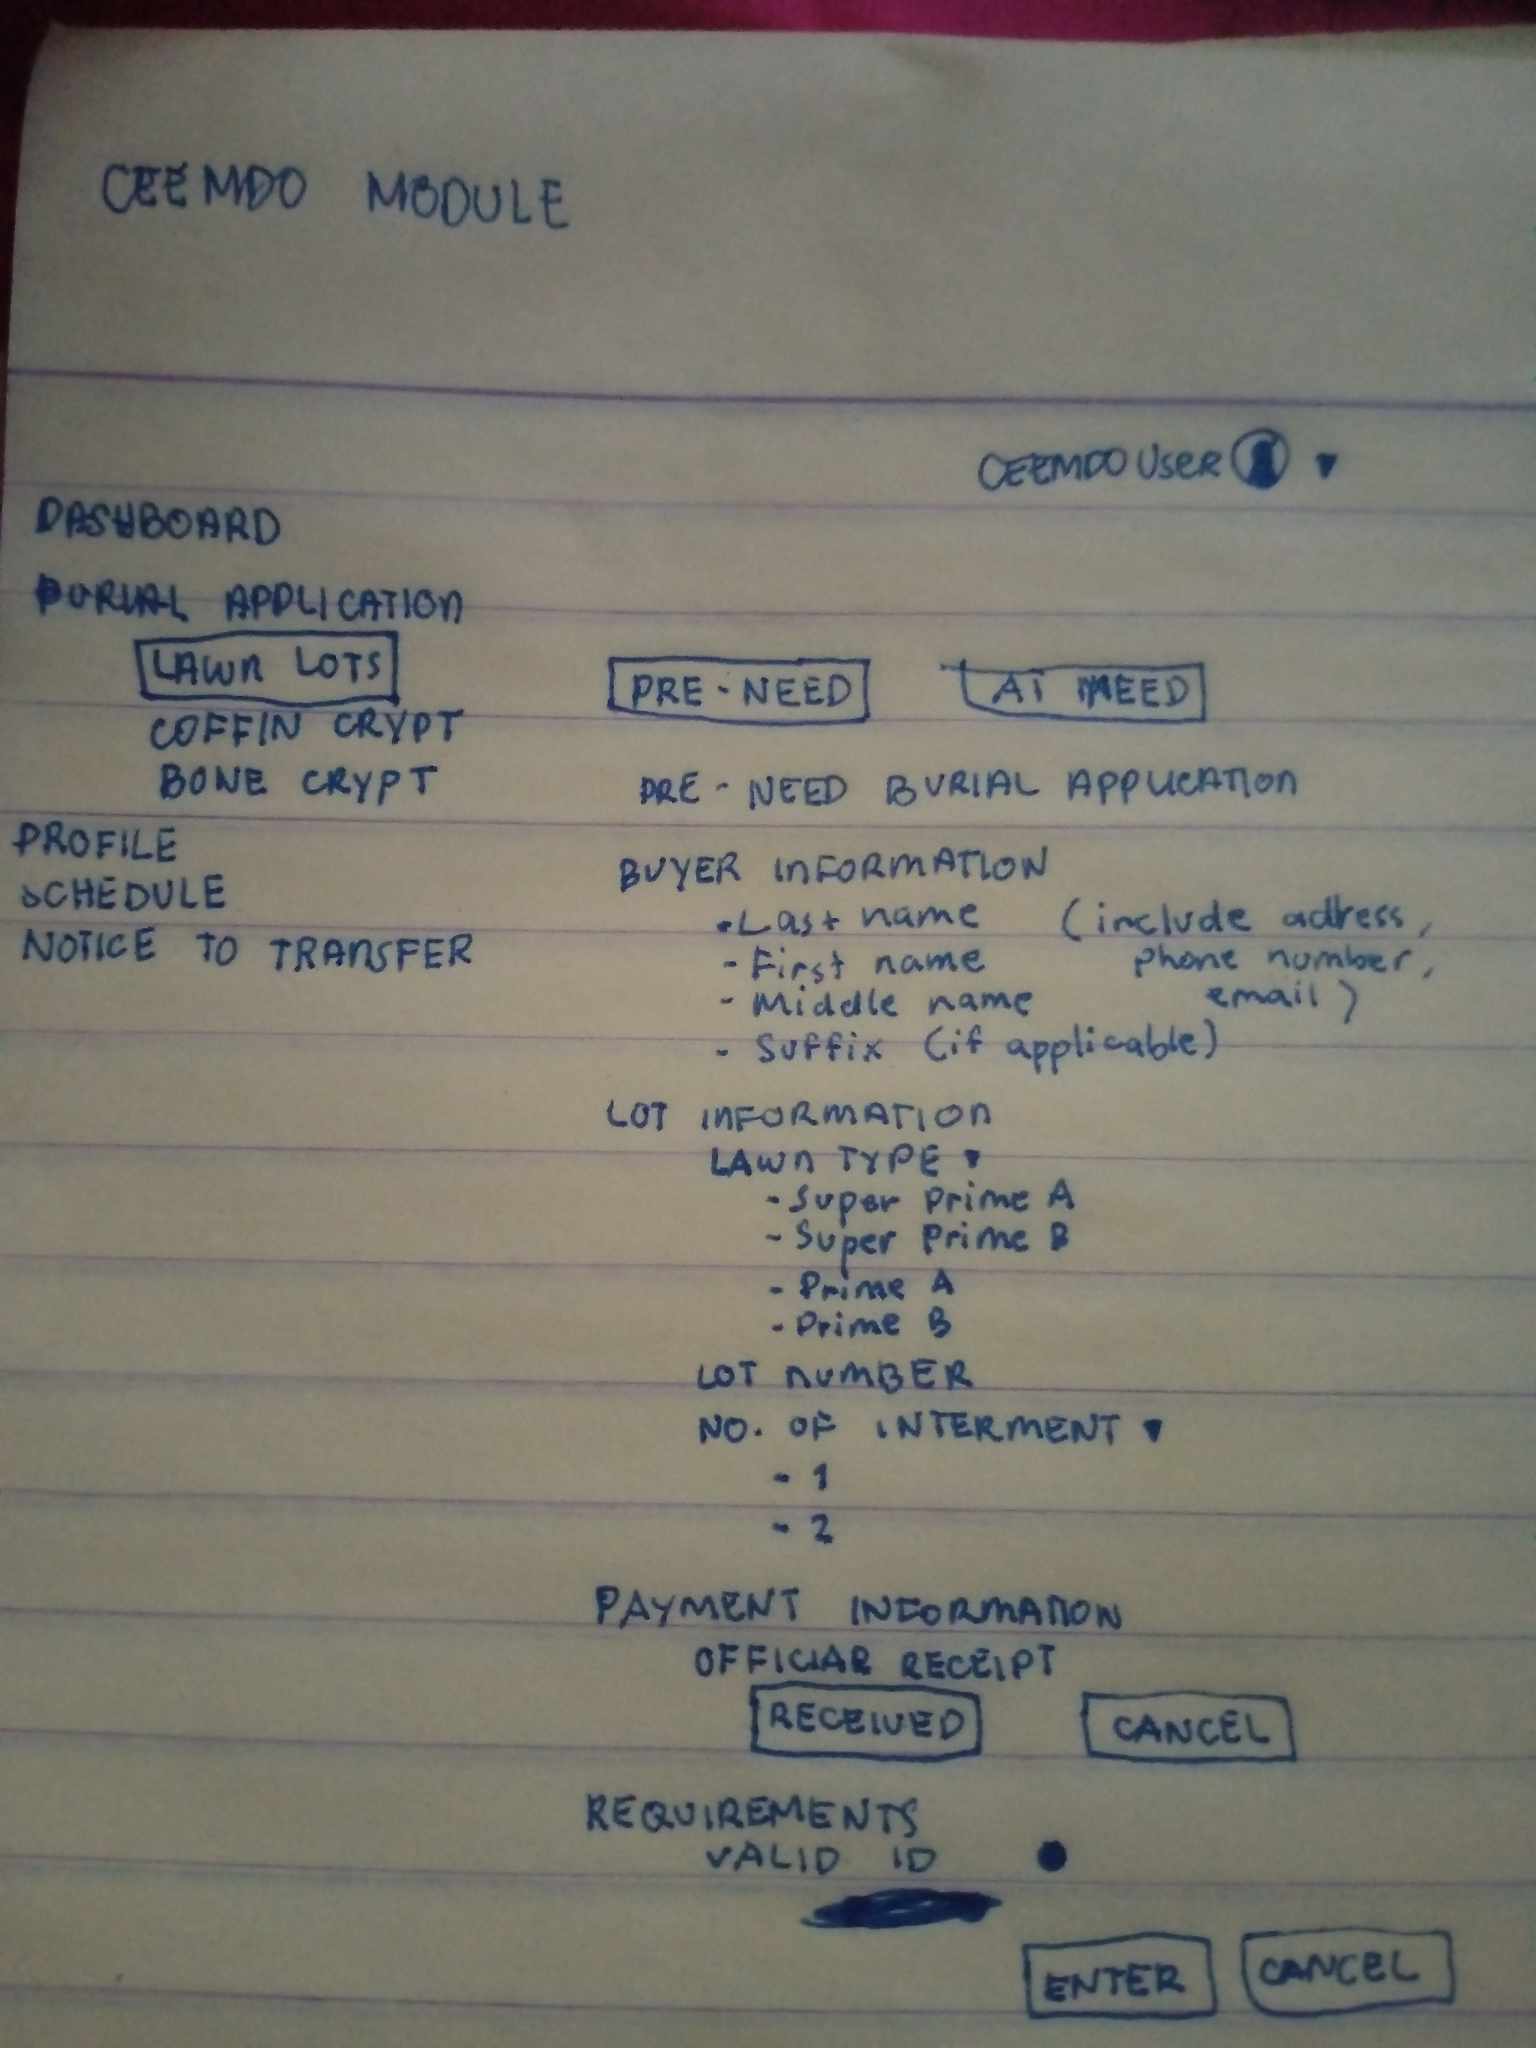 CEEMDO MODULE
CEEMDO USER ▼
DASHBOARD
BURIAL APPLICATION
LAWN LOTS
COFFIN CRYPT
BONE CRYPT
PROFILE
SCHEDULE
NOTICE TO TRANSFER
PRE-NEED AT NEED
PRE-NEED BURIAL APPLICATION
BUYER INFORMATION
- Last name (include adress,
- First name phone number,
- Middle name email)
- Suffix (if applicable)
LOT INFORMATION
LAWN TYPE ▼
- Super Prime A
- Super Prime B
- Prime A
- Prime B
LOT NUMBER
NO. OF INTERMENT ▼
- 1
- 2
PAYMENT INFORMATION
OFFICIAR RECEIPT
RECEIVED CANCEL
REQUIREMENTS
VALID ID
ENTER CANCEL